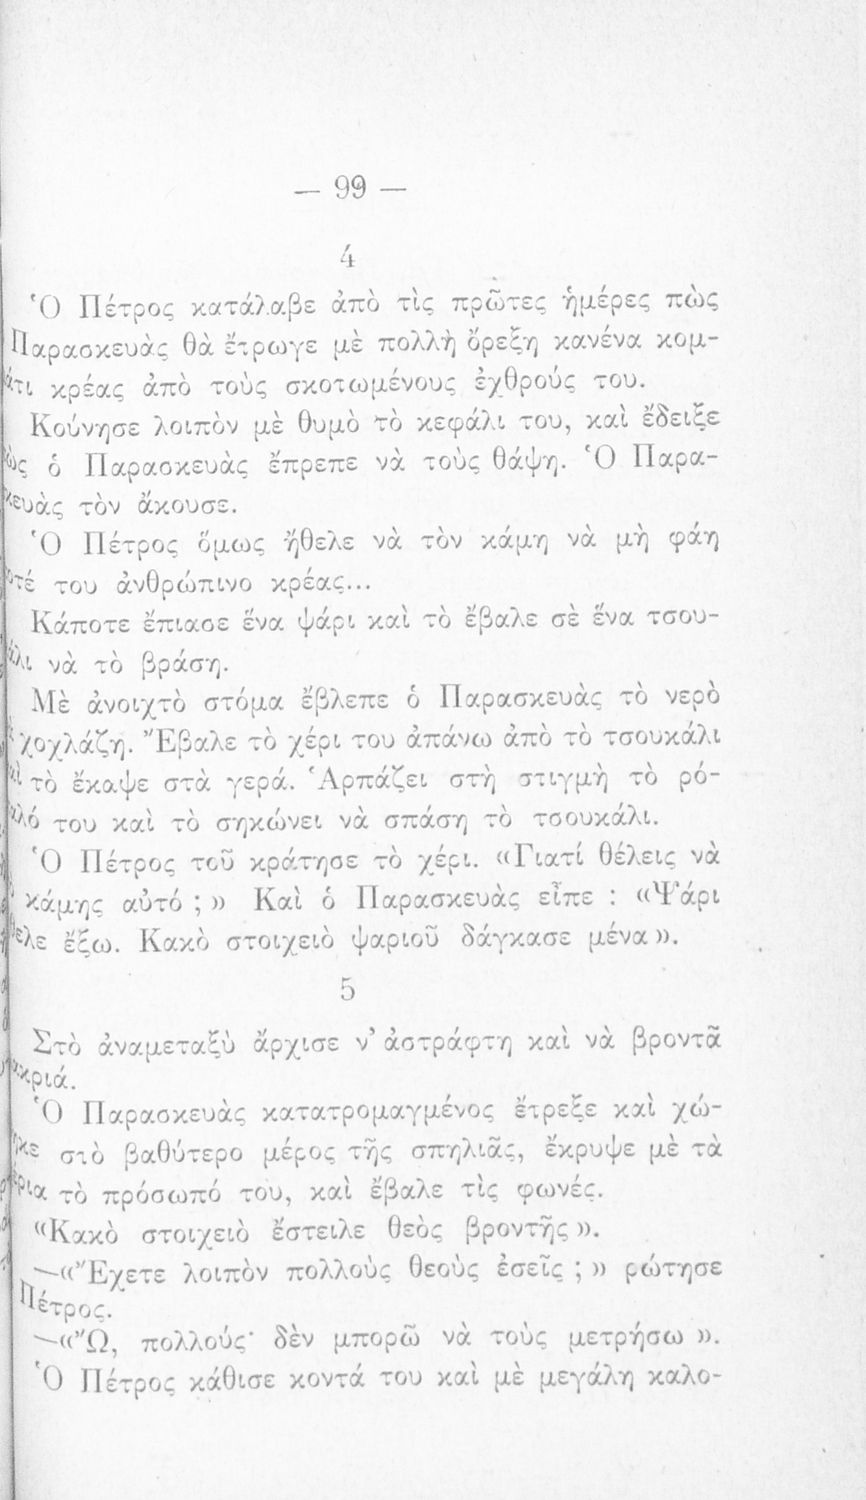 — 99 —
4
Ὁ Πέτρος κατάλαβε ἀπὸ τὶς πρῶτες ἡμέρες πὼς
Παρασκευὰς θὰ ἔτρωγε μὲ πολλὴ ὄρεξη κανένα κομ-
άτι κρέας ἀπὸ τοὺς σκοτωμένους ἐχθρούς του.
Κούνησε λοιπὸν μὲ θυμὸ τὸ κεφάλι του, καὶ ἔδειξε
ὼς ὁ Παρασκευὰς ἔπρεπε νὰ τοὺς θάψη. Ὁ Παρα-
κευὰς τὸν ἄκουσε.
Ὁ Πέτρος ὅμως ἤθελε νὰ τὸν κάμη νὰ μὴ φάη
οτέ του ἀνθρώπινο κρέας...
Κάποτε ἔπιασε ἕνα ψάρι καὶ τὸ ἔβαλε σὲ ἕνα τσου-
άλι νὰ τὸ βράση.
Μὲ ἀνοιχτὸ στόμα ἔβλεπε ὁ Παρασκευὰς τὸ νερὸ
χοχλάζη. Ἔβαλε τὸ χέρι του ἀπάνω ἀπὸ τὸ τσουκάλι
αὶ τὸ ἔκαψε στὰ γερά. Ἁρπάζει στὴ στιγμὴ τὸ ρό-
αλό του καὶ τὸ σηκώνει νὰ σπάση τὸ τσουκάλι.
Ὁ Πέτρος τοῦ κράτησε τὸ χέρι. «Γιατί θέλεις νὰ
κάμης αὐτό ; » Καὶ ὁ Παρασκευὰς εἶπε : «Ψάρι
ελε ἔξω. Κακὸ στοιχειὸ ψαριοῦ δάγκασε μένα ».
5
Στὸ ἀναμεταξὺ ἄρχισε ν᾿ ἀστράφτη καὶ νὰ βροντᾶ
ακριά.
Ὁ Παρασκευὰς κατατρομαγμένος ἔτρεξε καὶ χώ-
ηκε στὸ βαθύτερο μέρος τῆς σπηλιᾶς, ἔκρυψε μὲ τὰ
έρια τὸ πρόσωπό του, καὶ ἔβαλε τὶς φωνές.
«Κακὸ στοιχειὸ ἔστειλε θεὸς βροντῆς ».
—«Ἔχετε λοιπὸν πολλοὺς θεοὺς ἐσεῖς ; » ρώτησε
Πέτρος.
—«Ὢ, πολλούς· δὲν μπορῶ νὰ τοὺς μετρήσω ».
Ὁ Πέτρος κάθισε κοντά του καὶ μὲ μεγάλη καλο-